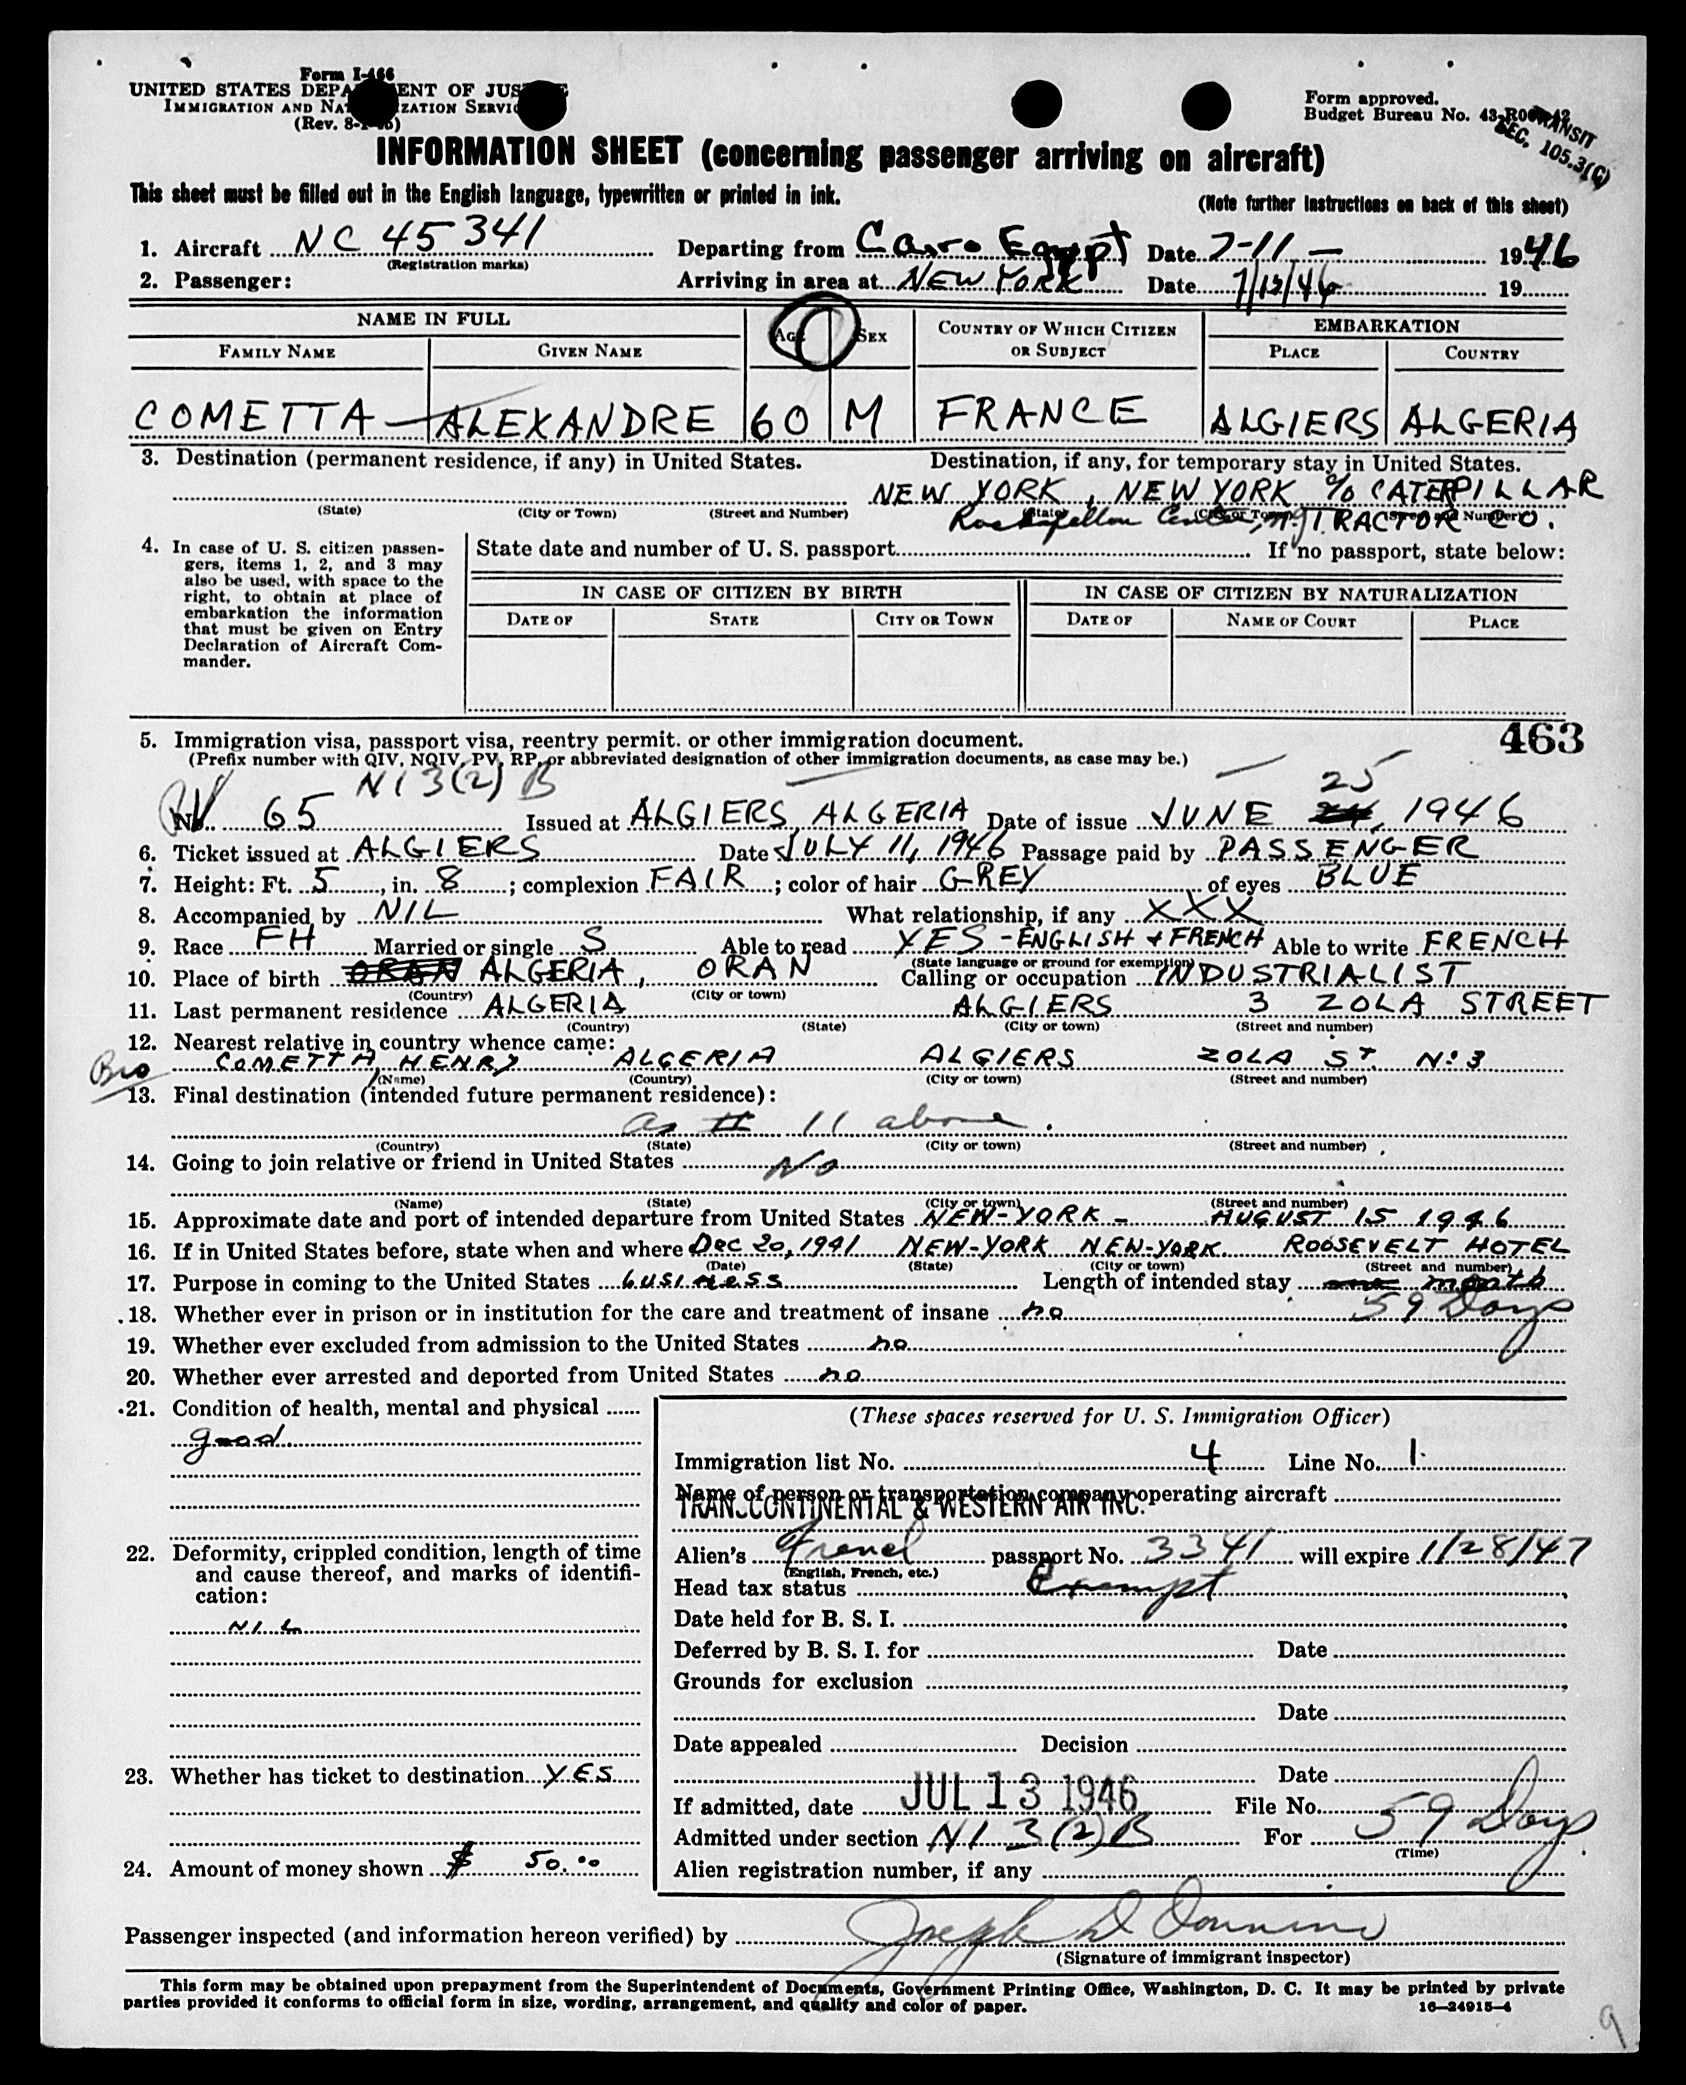 Form I-466
UNITED STATES DEPARTMENT OF JUSTICE
IMMIGRATION AND NATURALIZATION SERVICE
(Rev. 8-
Form approved.
Budget Bureau No. 43-R
TRANSIT
SEC. 105.3(C)
INFORMATION SHEET (concerning passenger arriving on aircraft)
This sheet must be filled out in the English language, typewritten or printed in ink.
(Note further instructions on back of this sheet)
1. Aircraft NC 45341 Departing from Cairo Egypt Date 7-11- 1946
(Registration marks)
2. Passenger: Arriving in area at NEW YORK Date 7/13/46 19
NAME IN FULL AGE SEX COUNTRY OF WHICH CITIZEN OR SUBJECT EMBARKATION
FAMILY NAME GIVEN NAME PLACE COUNTRY
COMETTA - ALEXANDRE 60 M FRANCE ALGIERS ALGERIA
3. Destination (permanent residence, if any) in United States. Destination, if any, for temporary stay in United States.
NEW YORK, NEW YORK % CATERPILLAR
(State) (City or Town) (Street and Number) (State) (City or Town) (Street and Number)
Rockefeller Center, NY TRACTOR CO.
4. In case of U. S. citizen passengers, items 1, 2, and 3 may also be used, with space to the right, to obtain at place of embarkation the information that must be given on Entry Declaration of Aircraft Commander.
State date and number of U. S. passport If no passport, state below:
IN CASE OF CITIZEN BY BIRTH IN CASE OF CITIZEN BY NATURALIZATION
DATE OF STATE CITY OR TOWN DATE OF NAME OF COURT PLACE
463
5. Immigration visa, passport visa, reentry permit. or other immigration document.
(Prefix number with QIV, NQIV, PV, RP, or abbreviated designation of other immigration documents, as case may be.)
NI 3(2) B 25
PV No. 65 Issued at ALGIERS, ALGERIA Date of issue JUNE 24, 1946
6. Ticket issued at ALGIERS Date JULY 11, 1946 Passage paid by PASSENGER
7. Height: Ft. 5, in. 8; complexion FAIR; color of hair GREY of eyes BLUE
8. Accompanied by NIL What relationship, if any XXX
9. Race FH Married or single S Able to read YES - ENGLISH + FRENCH Able to write FRENCH
(State language or ground for exemption)
10. Place of birth ORAN ALGERIA, ORAN Calling or occupation INDUSTRIALIST
(Country) (City or town)
11. Last permanent residence ALGERIA ALGIERS 3 ZOLA STREET
(Country) (State) (City or town) (Street and number)
12. Nearest relative in country whence came:
Bro COMETTA, HENRY ALGERIA ALGIERS ZOLA ST. No. 3
(Name) (Country) (City or town) (Street and number)
13. Final destination (intended future permanent residence):
as # 11 above.
(Country) (State) (City or town) (Street and number)
14. Going to join relative or friend in United States No
(Name) (State) (City or town) (Street and number)
15. Approximate date and port of intended departure from United States NEW-YORK - AUGUST 15 1946
16. If in United States before, state when and where Dec 20, 1941 NEW-YORK NEW-YORK. ROOSEVELT HOTEL
(Date) (State) (City or town) (Street and number)
17. Purpose in coming to the United States business Length of intended stay one month
59 Days
18. Whether ever in prison or in institution for the care and treatment of insane no
19. Whether ever excluded from admission to the United States no
20. Whether ever arrested and deported from United States no
21. Condition of health, mental and physical
good
22. Deformity, crippled condition, length of time and cause thereof, and marks of identification:
NIL
23. Whether has ticket to destination YES
24. Amount of money shown $ 50.00
(These spaces reserved for U. S. Immigration Officer)
Immigration list No. 4 Line No. 1
Name of person or transportation company operating aircraft
TRANSCONTINENTAL & WESTERN AIR INC.
Alien's French passport No. 3341 will expire 1/28/47
(English, French, etc.)
Head tax status Exempt
Date held for B. S. I.
Deferred by B. S. I. for Date
Grounds for exclusion
Date
Date appealed Decision
Date
If admitted, date JUL 13 1946 File No.
Admitted under section NI 3(2)B For 59 Days
(Time)
Alien registration number, if any
Passenger inspected (and information hereon verified) by Joseph D
(Signature of immigrant inspector)
This form may be obtained upon prepayment from the Superintendent of Documents, Government Printing Office, Washington, D. C. It may be printed by private
parties provided it conforms to official form in size, wording, arrangement, and quality and color of paper. 16—24915-4
9